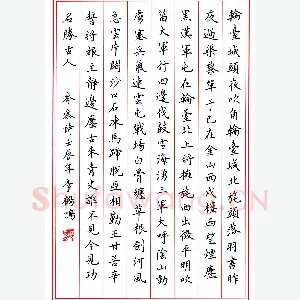 輪臺城頭夜吹角輪臺城北旄頭落羽書昨
夜過渠黎單于已在金山西戍樓西望煙塵
黑漢軍屯在輪臺北上將擁旄西出征平明吹
笛大軍行四邊伐鼓雪海湧三軍大呼陰山動
虜塞兵氣連雲屯戰場白骨纏草根劍河風
急雲片闊沙口石凍馬蹄脫亞相勤王甘苦辛
誓將報主靜邊塵古來青史誰不見今見功
名勝古人 岑參詩壬辰年李